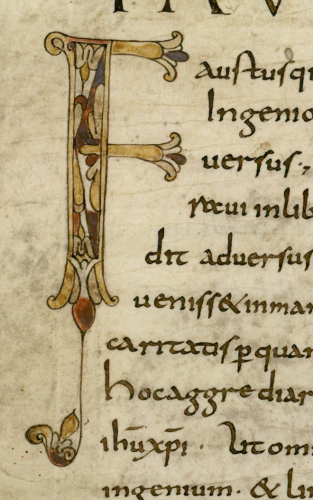 Faustusqu
Ingenio
uersus.,
raui inlib
dit aduersus
ueniss& inman
caritatis ꝑ quam
hocaggrediar
ihū xp̄i · Ut omn
ingenium · & lin